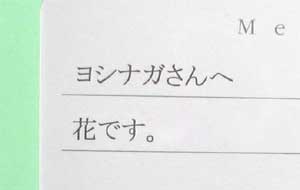 Me
ヨシナガさんへ
花です。